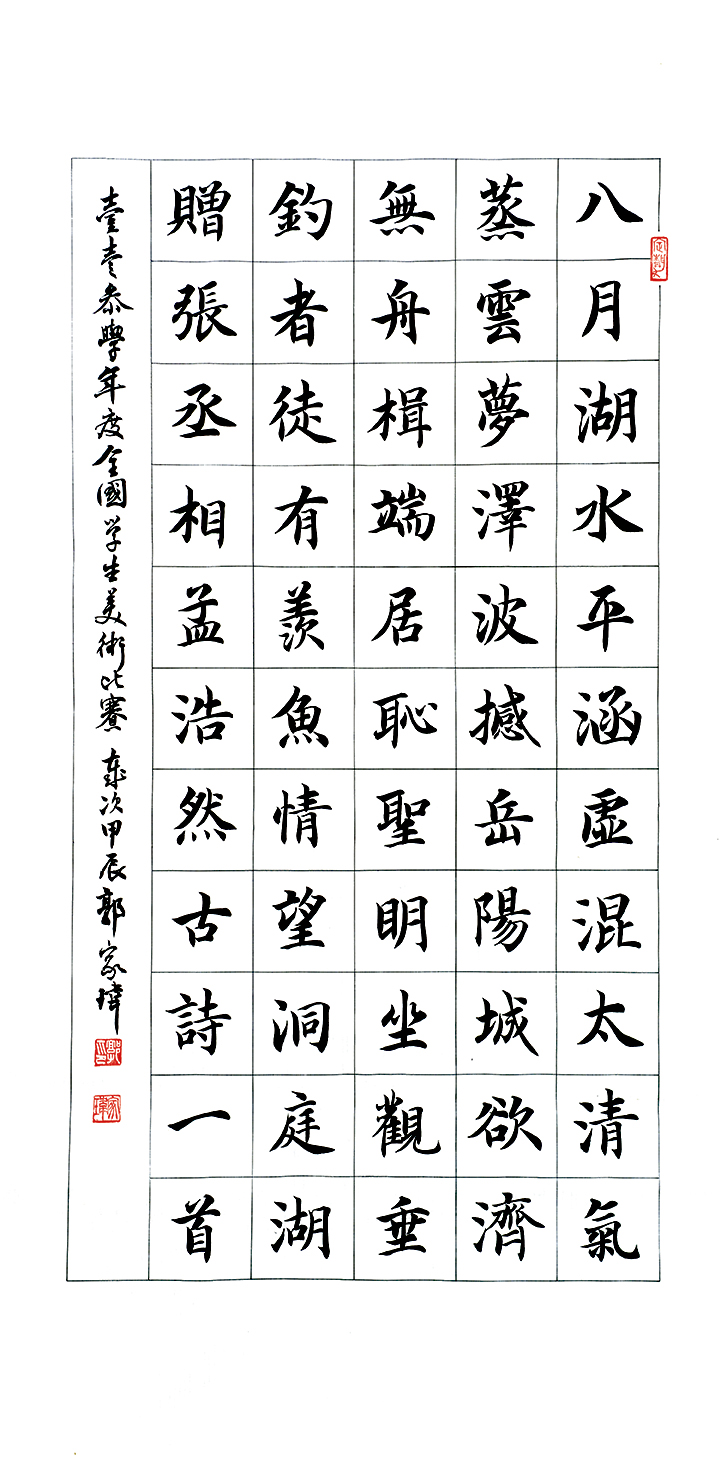 八月湖水平涵虛混太清氣
蒸雲夢澤波撼岳陽城欲濟
無舟楫端居恥聖明坐觀垂
釣者徒有羨魚情望洞庭湖
贈張丞相孟浩然古詩一首
壹壹叁學年度全國学生美術比賽 歲次甲辰郭家瑋
郭
家瑋